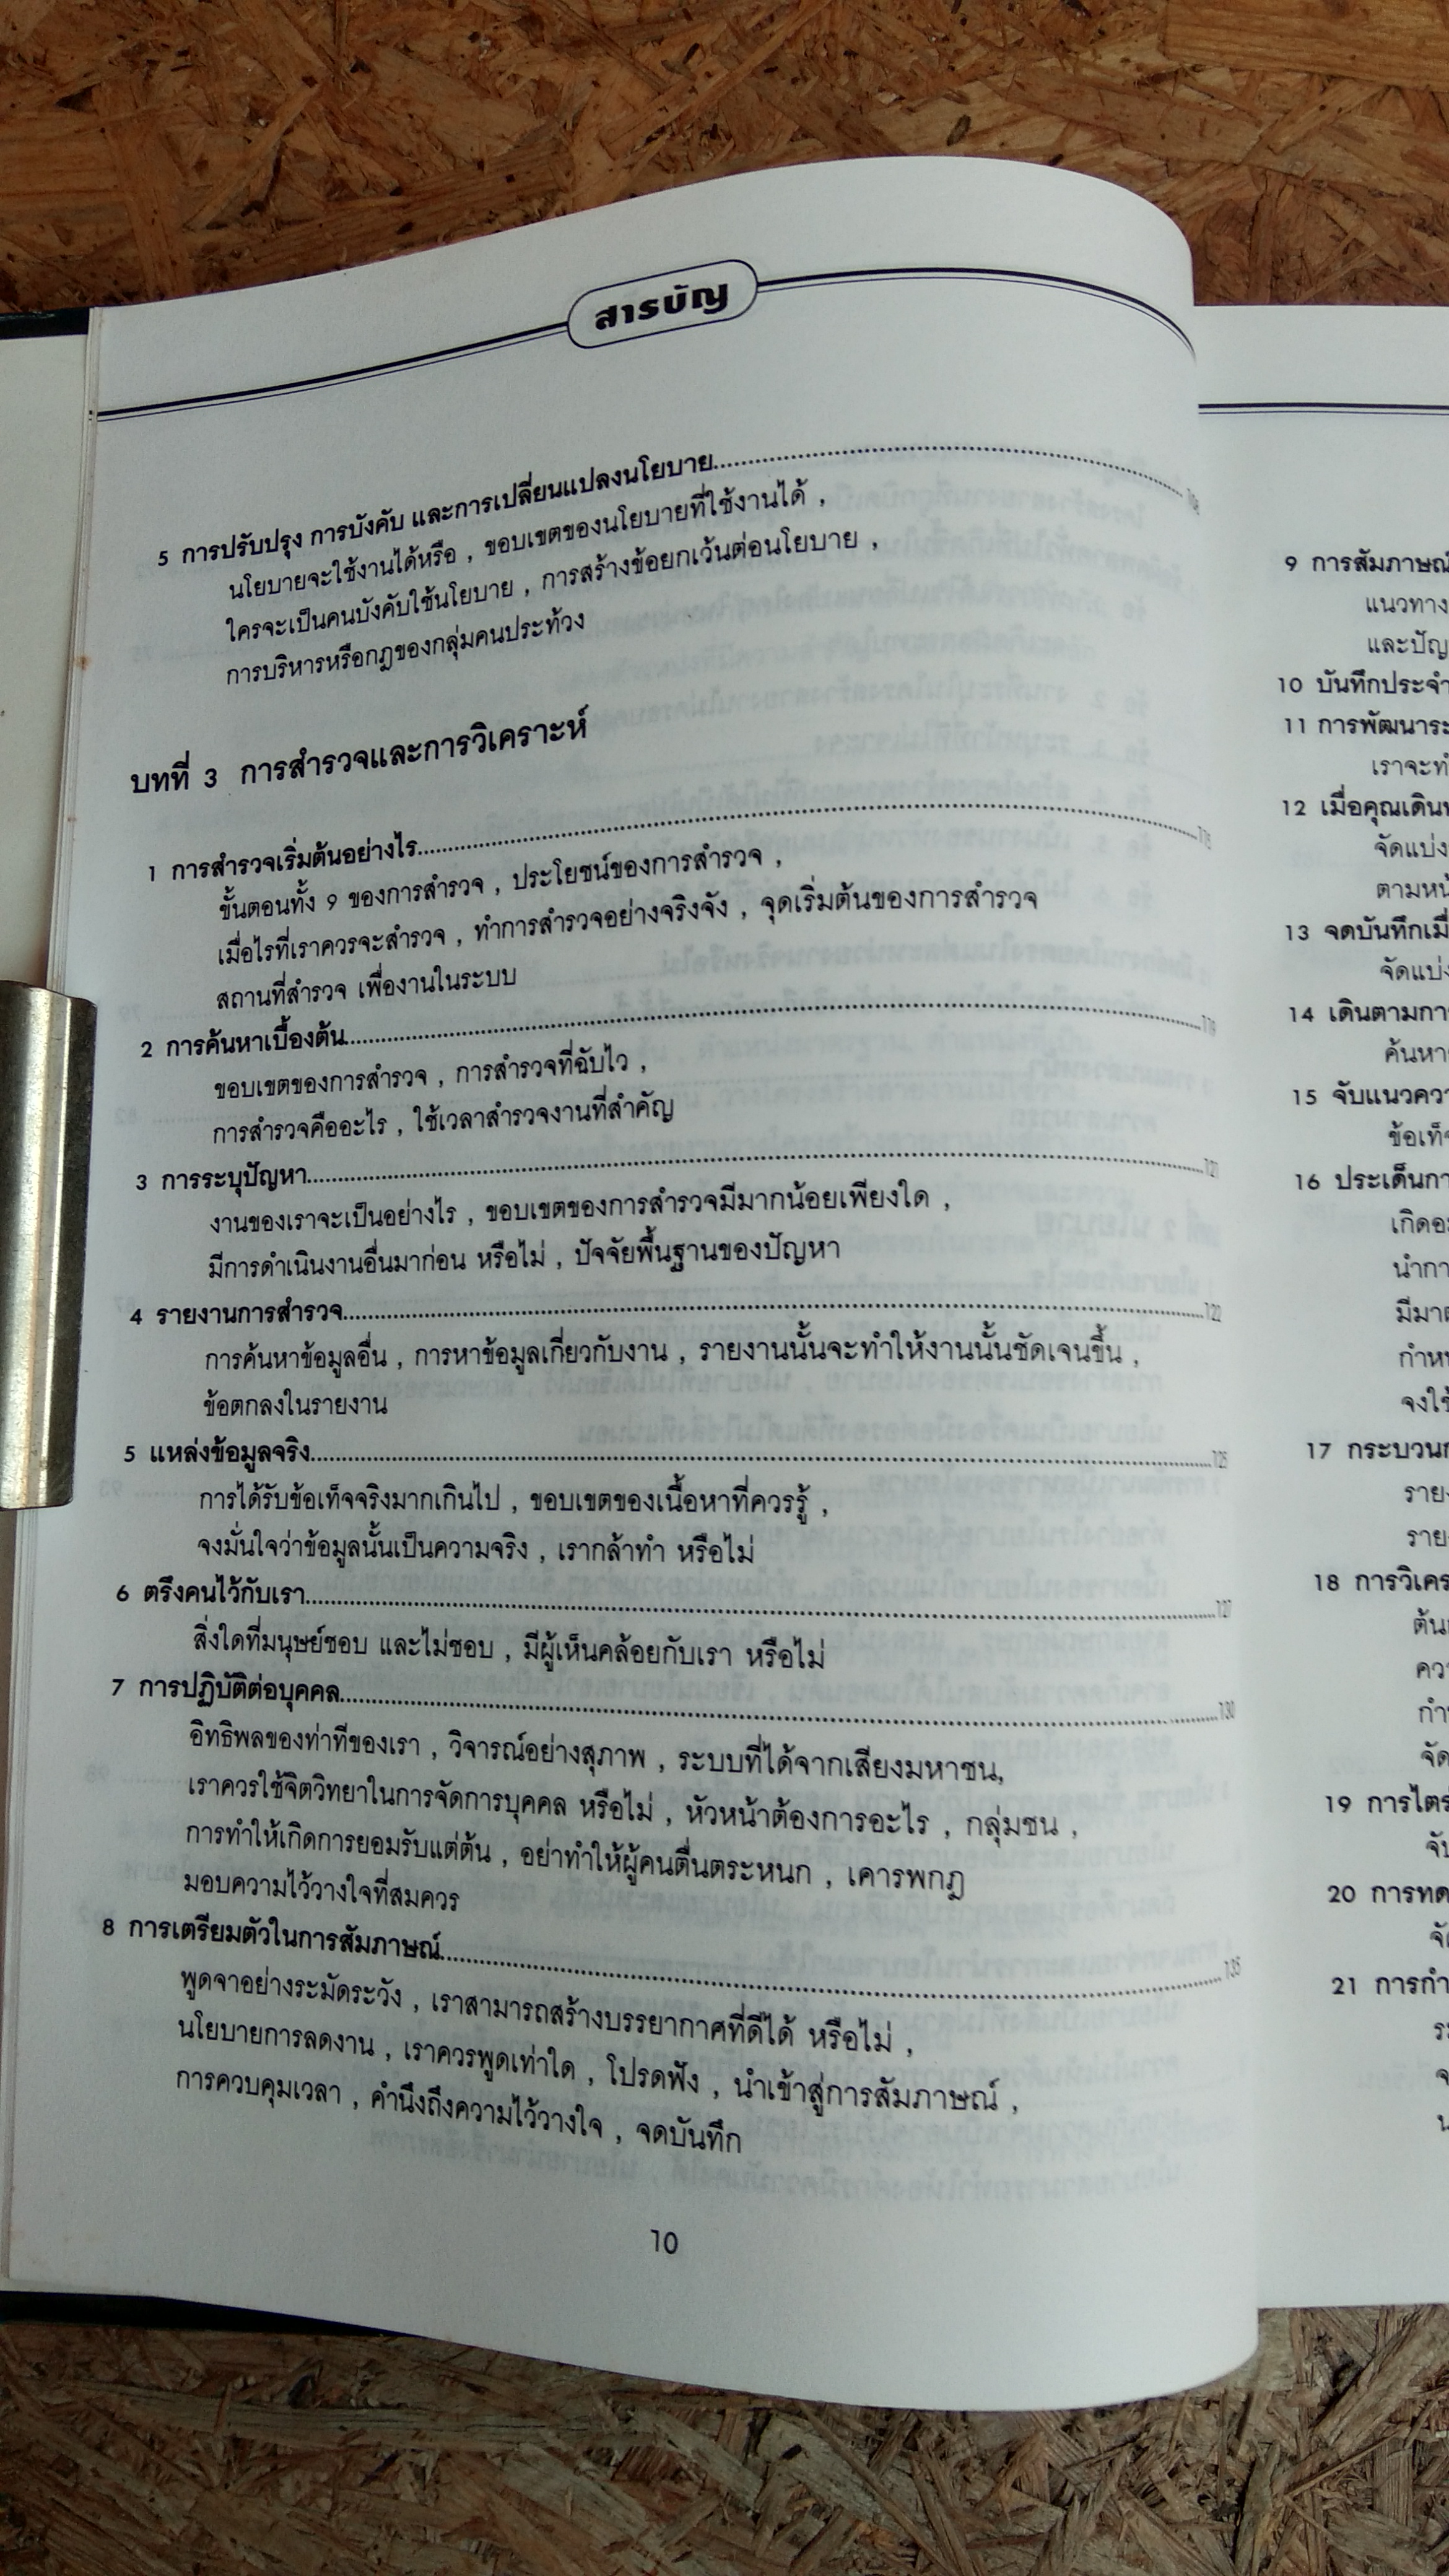 สารบัญ
5 การปรับปรุง การบังคับ และการเปลี่ยนแปลงนโยบาย
นโยบายจะใช้งานได้หรือ , ขอบเขตของนโยบายที่ใช้งานได้ ,
ใครจะเป็นคนบังคับใช้นโยบาย , การสร้างข้อยกเว้นต่อนโยบาย ,
การบริหารหรือกฎของกลุ่มคนประท้วง
บทที่ 3 การสำรวจและการวิเคราะห์
1 การสำรวจเริ่มต้นอย่างไร
ขั้นตอนทั้ง 9 ของการสำรวจ , ประโยชน์ของการสำรวจ ,
เมื่อไรที่เราควรจะสำรวจ , ทำการสำรวจอย่างจริงจัง , จุดเริ่มต้นของการสำรวจ
สถานที่สำรวจ เพื่องานในระบบ
2 การค้นหาเบื้องต้น
ขอบเขตของการสำรวจ , การสำรวจที่ฉับไว ,
การสำรวจคืออะไร , ใช้เวลาสำรวจงานที่สำคัญ
3 การระบุปัญหา 121
งานของเราจะเป็นอย่างไร , ขอบเขตของการสำรวจมีมากน้อยเพียงใด ,
มีการดำเนินงานอื่นมาก่อน หรือไม่ , ปัจจัยพื้นฐานของปัญหา
4 รายงานการสำรวจ 122
การค้นหาข้อมูลอื่น , การหาข้อมูลเกี่ยวกับงาน , รายงานนั้นจะทำให้งานนั้นชัดเจนขึ้น ,
ข้อตกลงในรายงาน
5 แหล่งข้อมูลจริง 125
การได้รับข้อเท็จจริงมากเกินไป , ขอบเขตของเนื้อหาที่ควรรู้ ,
จงมั่นใจว่าข้อมูลนั้นเป็นความจริง , เรากล้าทำ หรือไม่
6 ตรึงคนไว้กับเรา 127
สิ่งใดที่มนุษย์ชอบ และไม่ชอบ , มีผู้เห็นคล้อยกับเรา หรือไม่
7 การปฏิบัติต่อบุคคล 130
อิทธิพลของท่าทีของเรา , วิจารณ์อย่างสุภาพ , ระบบที่ได้จากเสียงมหาชน,
เราควรใช้จิตวิทยาในการจัดการบุคคล หรือไม่ , หัวหน้าต้องการอะไร , กลุ่มชน ,
การทำให้เกิดการยอมรับแต่ต้น , อย่าทำให้ผู้คนตื่นตระหนก , เคารพกฎ
มอบความไว้วางใจที่สมควร
8 การเตรียมตัวในการสัมภาษณ์ 135
พูดจาอย่างระมัดระวัง , เราสามารถสร้างบรรยากาศที่ดีได้ หรือไม่ ,
นโยบายการลดงาน , เราควรพูดเท่าใด , โปรดฟัง , นำเข้าสู่การสัมภาษณ์ ,
การควบคุมเวลา , คำนึงถึงความไว้วางใจ , จดบันทึก
10
9 การสัมภาษณ์
แนวทาง
10 บันทึกประจำ
11 การพัฒนาระ
เราจะทำ
12 เมื่อคุณเดิน
จัดแบ่ง
ตามหน้
13 จดบันทึกเมื่
จัดแบ่ง
14 เดินตามกา
ค้นหา
15 จับแนวควา
ข้อเท็จ
16 ประเด็นกา
เกิดอ
นำกา
มีมา
กำห
จงใช้
17 กระบวน
ราย
ราย
18 การวิเคร
ต้น
ควา
กำ
จัด
19 การไตร
จั
20 การทด
จั
21 การกำ
ร
จ
น